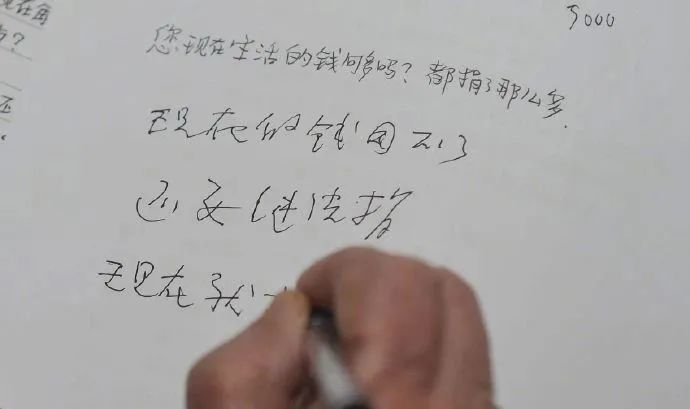 5000
您现在生活的钱够吗？都捐了那么多.
现在的钱用不了
还要继续捐
现在我
在再
？
还